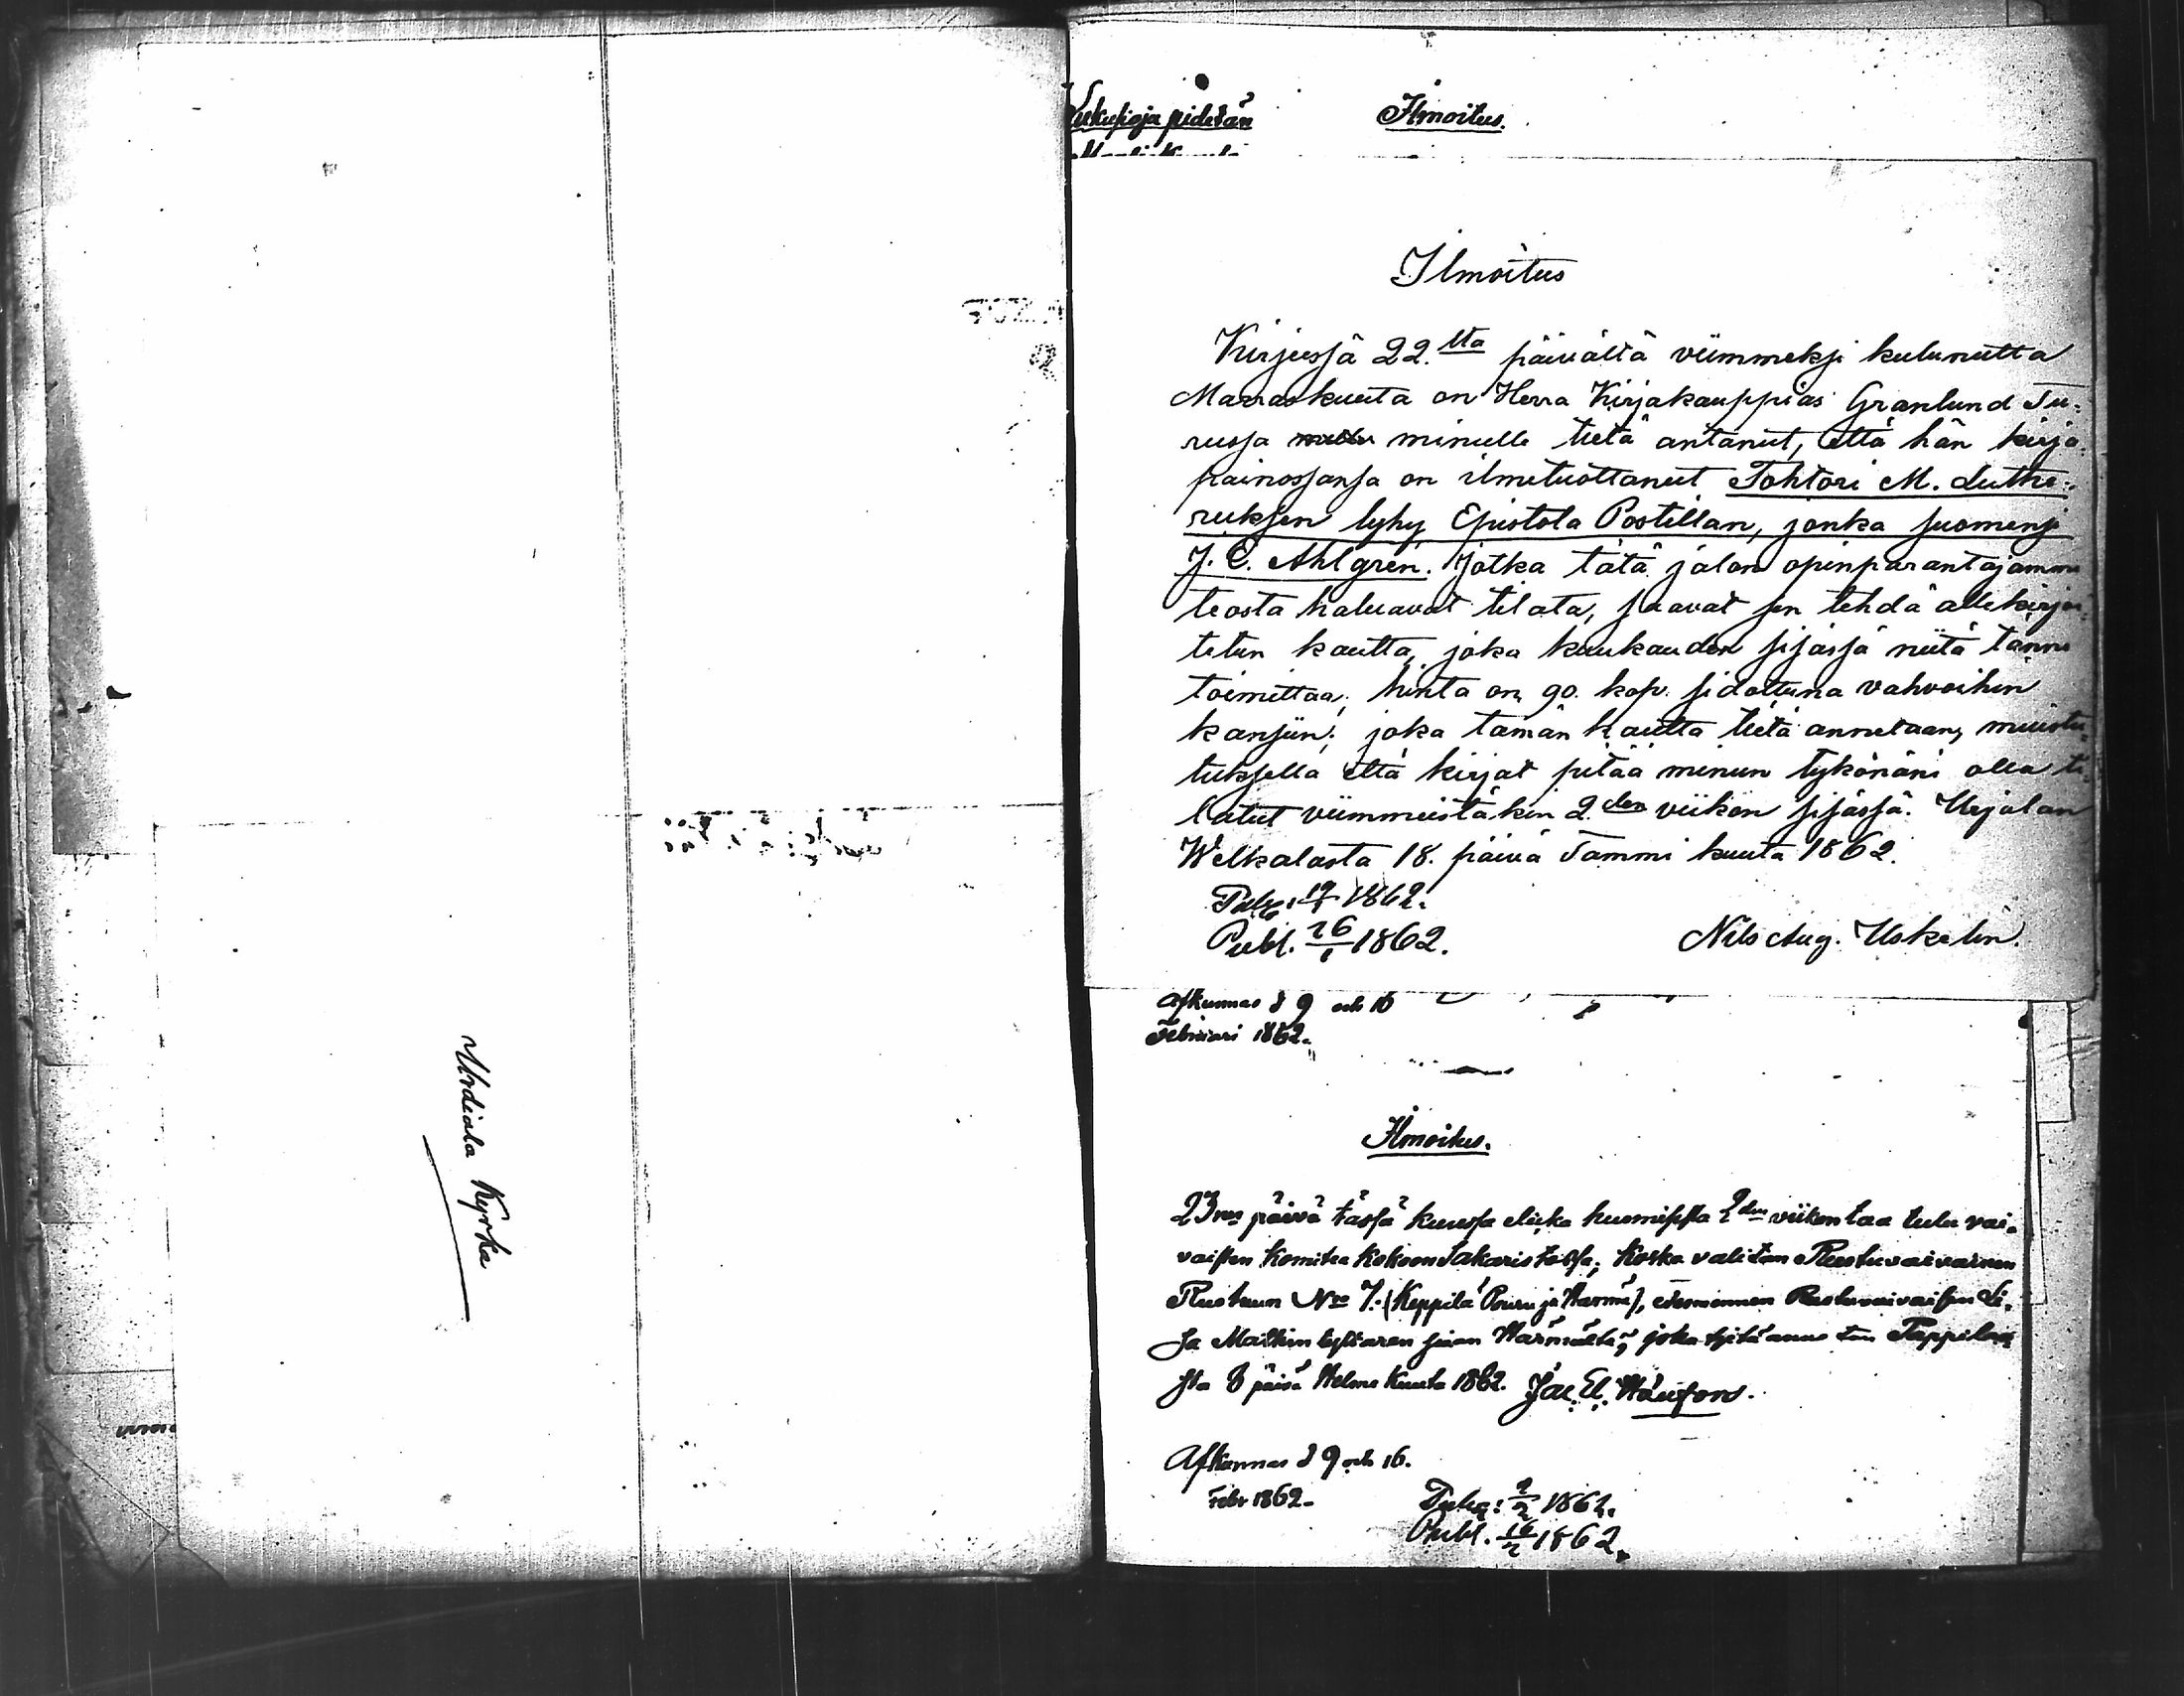 Urdiala Kyrka
Lukusioja pidetän
Ilmoitus.
Ilmoitus
Kirjeessä 22.lta päivältä viimmeksi kulunutta
Marraskuuta on Herra Kirjakauppias Granlund Tu-
russa minulle tietä antanut, että hän kirja-
painossansa on ilmituottanut Tohtori M. Luthe-
ruksen lyhy Epistola Postillan, jonka suomensi
J. E. Ahlgren. Jotka tätä jalon opinparantajamme
teosta haluavat tilata, saavat sen tehdä allekirjoi-
tetun kautta, joka kuukauden sisässä niitä tänne
toimittaa; hinta on 90. kop. sidottuna vahvoihin
kansiin; joka tämän kautta tietä annetaan, muistu-
tuksella että kirjat pitää minun tykönäni olla ti-
latut viimmeistäkin 2.den viikon sisässä. Urjalan
Welkalasta 18. päivä Tammi kuuta 1862.
Pulq: 19/1 1862.
Publ. 26/1 1862.
Nils Aug. Uskelin.
Afkunnas d 9 och 16
Februari 1862.
Ilmoitus.
23na päivä tässä kuussa elicka huomisesta 2den viikon taa tulee vai-
vaisten Komitea kokoon Sakaristossa; koska valitan Ruotuvaivainen
Ruotuun No 7. (Keppilä Pouru ja Warmi), edesmennen Ruotuvaivaisen Li-
sa Matkin tyttaren sian Warmälta; joka tytä annetan Pappilas-
sta 8 päivä Helme Kuuta 1862. Jac. El. Häufors.
Afkunnas d 9 och 16.
Febr 1862.
Pulq: 9/2 1862.
Publ. 16/2 1862.